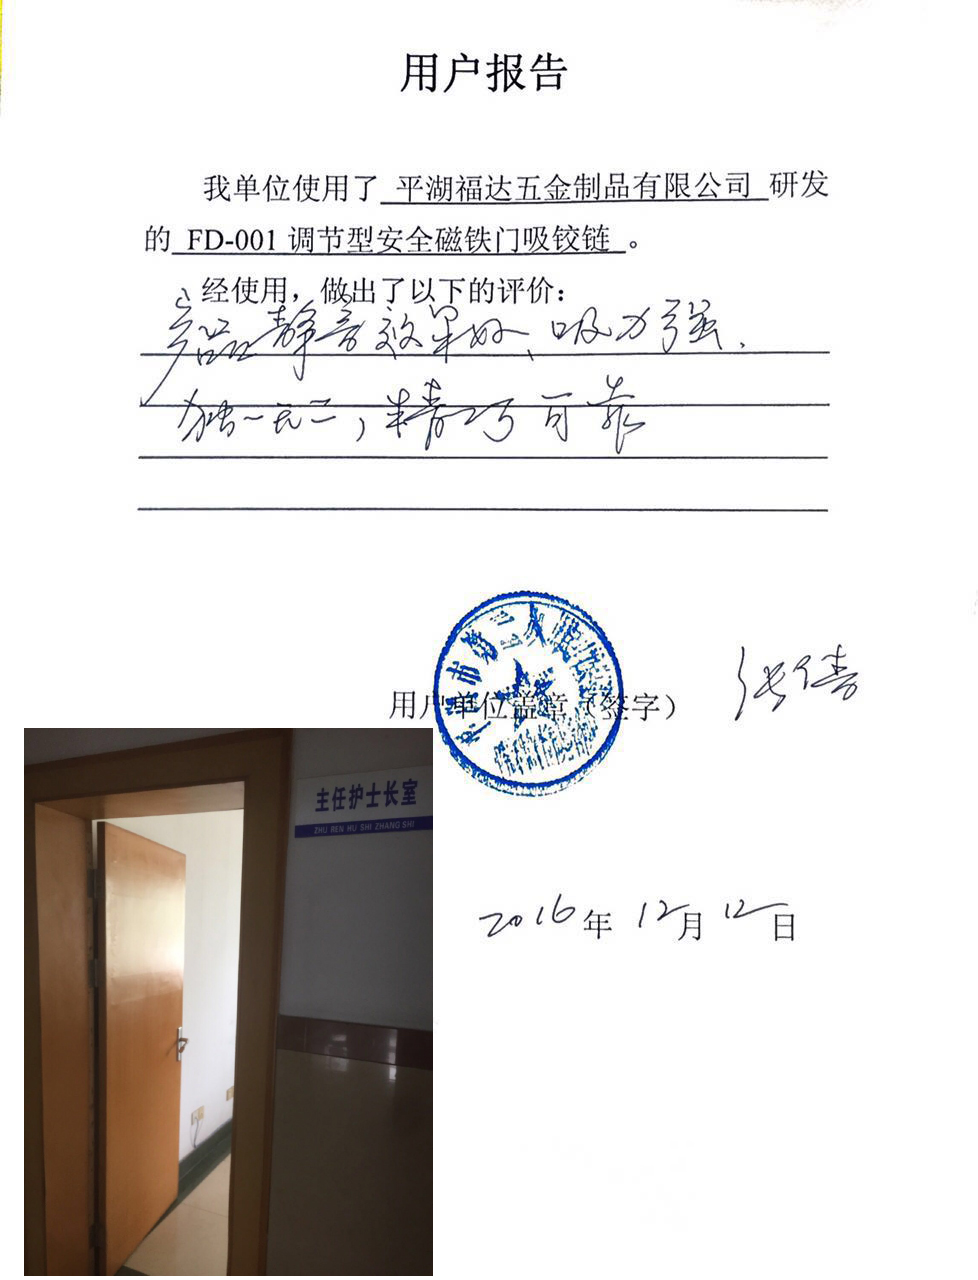 用户报告
我单位使用了 平湖福达五金制品有限公司 研发
的 FD-001 调节型安全磁铁门吸铰链 。
经使用，做出了以下的评价：
产品静音效果好、吸力强、
独一无二，精巧可靠
市第二人民医院
用户单位盖章（签字）
张倩
主任护士长室
ZHU REN HU SHI ZHANG SHI
2016年 12月 12日